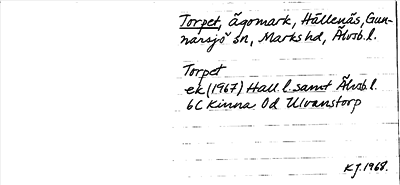 Torpet, ägomark, Hällenäs, Gun-
narsjö sn, Marks hd, Älvsb. l.
Torpet
ek (1967) Hall. l. samt Älvsb. l.
6C Kinna 0d Ulvanstorp
KJ. 1968.